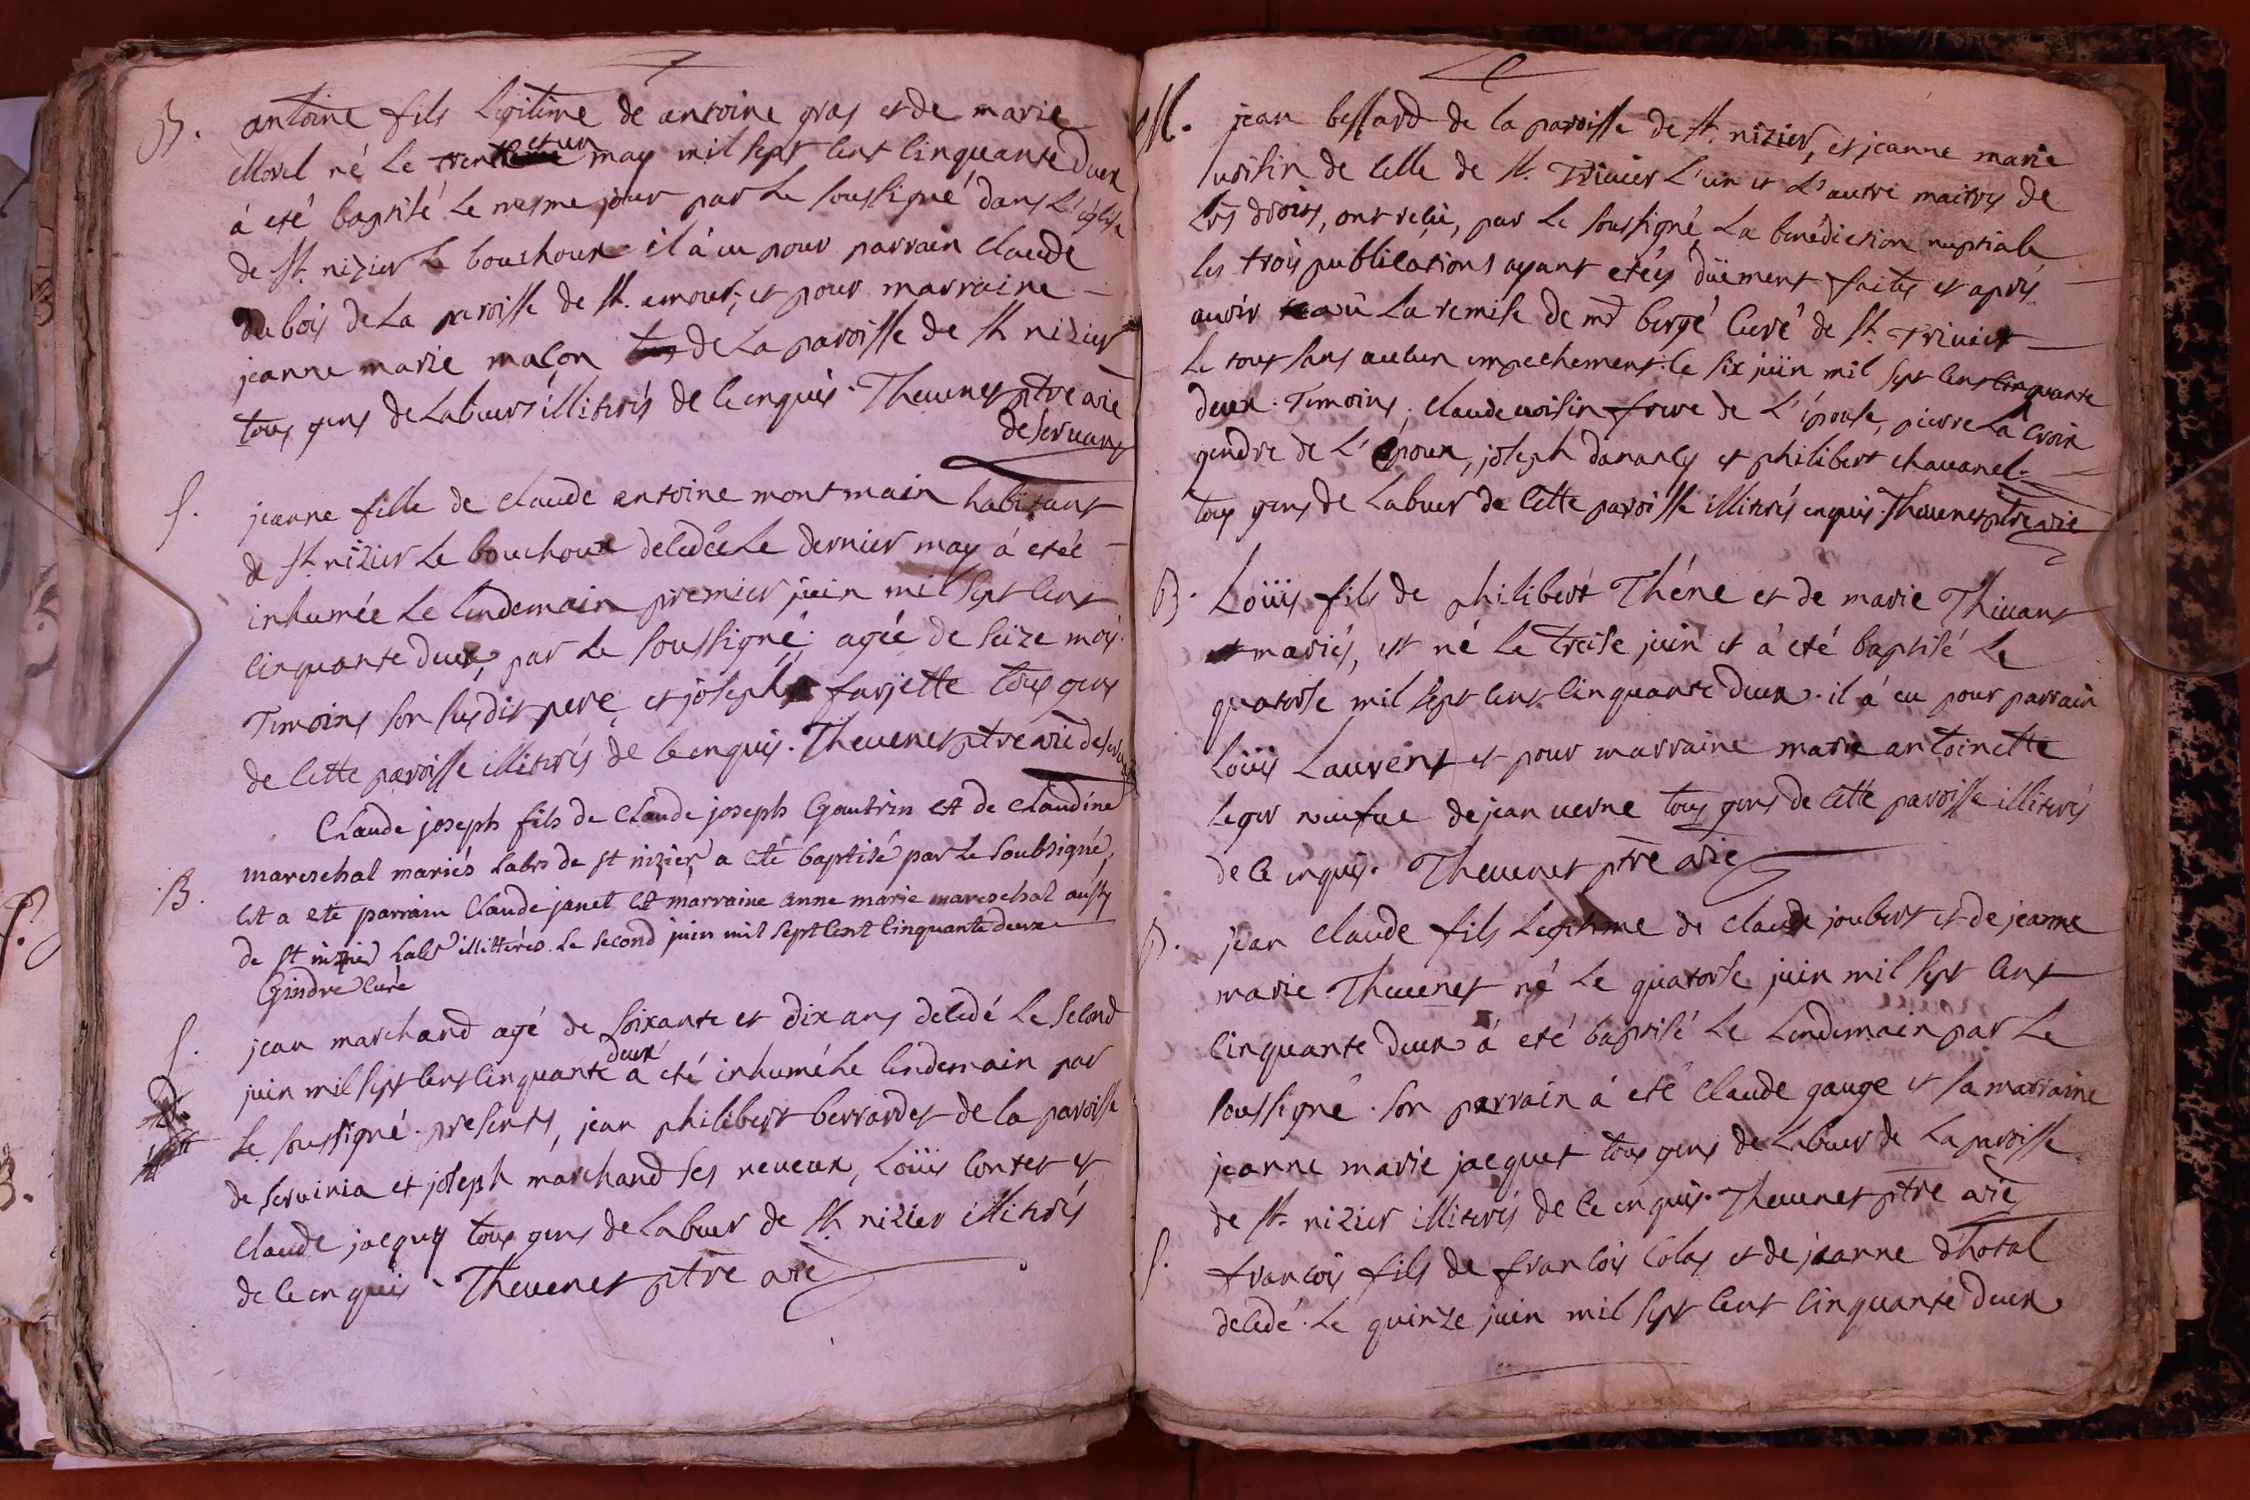 B. antoine fils legitime de antoine gras et de marie
Morel né le trente et un may mil sept cent cinquante deux
à eté baptisé le mesme jour par le soussigné dans l'eglise
de st. nizier le bouchoux il à eu pour parrain claude
dubois de la paroisse de st. amour, et pour marraine
jeanne marie maçon de la paroisse de st nizier
tous gens de labeurs illiterés de ce enquis. Thevenet ptre vic
deservant
S. jeanne fille de claude antoine montmain habitant
de st. nizier le bouchoux decedée le dernier may à etée
inhumée le lendemain premier juin mil sept cent
cinquante deux, par le soussigné, agée de seize mois.
Temoins son susdit pere et joseph farjette tous gens
de cette paroisse illiterés de ce enquis. Thevenet ptre vic
Claude joseph fils de Claude joseph Gautrin et de claudine
mareschal mariés labrs de st nizier a eté baptisé par le soubsigné,
B. Et a eté parrain Claude janet et marraine anne marie mareschal aussy
de st nizier labrs illitterés. le second juin mil sept cent cinquante deux
Gindre curé
S. jean marchand agé de soixante et dix ans decedé le second
juin mil sept cent cinquante deux a eté inhumé le lendemain par
le soussigné. presents, jean philibert berrardet de la paroisse
de servinia et joseph marchand ses neveux, Loüis contet et
claude jacquet tous gens de labeur de st. nizier illiterés
de ce enquis. Thevenet ptre vic
M. jean bessard de la paroisse de st. nizier, et jeanne marie
voisin de celle de st. Trivier l'un et l'autre maitres de
les droits, ont reçû, par le soussigné la benediction nuptiale
les trois publications ayant etéés düement faites et aprés
avoir vû la remise de mr bergé curé de st. Trivier
le tout sans aucun empechement. le six juin mil sept cent cinquante
deux. Temoins, claude voisin frere de l'épouse, pierre la croix
gendre de l'époux, joseph dananly et philibert chavanel.
tous gens de labeur de cette paroisse illiterés enquis. Thevenet ptre vic
B. Loüis fils de philibert Théne et de marie Thivant
mariés, est né le treise juin et à eté baptisé le
quatorse mil sept cent cinquante deux. il à eu pour parrain
Loüis Laurent et pour marraine marie antoinette
leger veufve de jean verne tous gens de cette paroisse illiterés
de ce enquis. Thevenet ptre vic
B. jean claude fils legitime de claude joubert et de jeanne
marie Thevenet né le quatorse juin mil sept cent
cinquante deux à eté baptisé le lendemain par le
soussigné. son parrain à eté claude gauge et sa marraine
jeanne marie jacquet tous gens de labeur de la paroisse
de st. nizier illiterés de ce enquis. Thevenet ptre vic
S. françois fils de françois Colas et de jeanne d'hotal
decedé le quinze juin mil sept cent cinquante deux